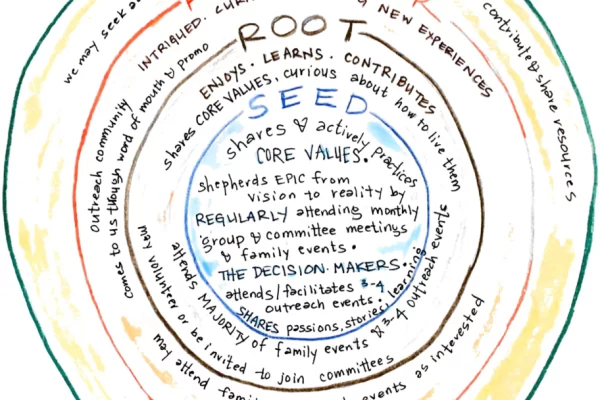 we may seek
contribute & share resources
INTRIGUED.
NEW EXPERIENCES
Outreach community
comes to us through word of mouth & promo
may attend
events as interested
ROOT
ENJOYS. LEARNS. CONTRIBUTES
shares CORE VALUES, curious about how to live them
may volunteer or be invited to join committees
attends MAJORITY of family events & 3-4 outreach events
SEED
shares & actively practices
CORE VALUES.
shepherds EPIC from
vision to reality by
REGULARLY attending monthly
group & committee meetings
& family events.
THE DECISION-MAKERS.
attends/facilitates 3-4
outreach events.
SHARES passions, stories, learning